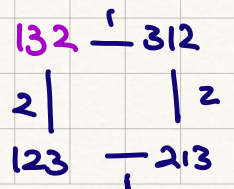 1
132 — 312
2 | | 2
123 — 213
1